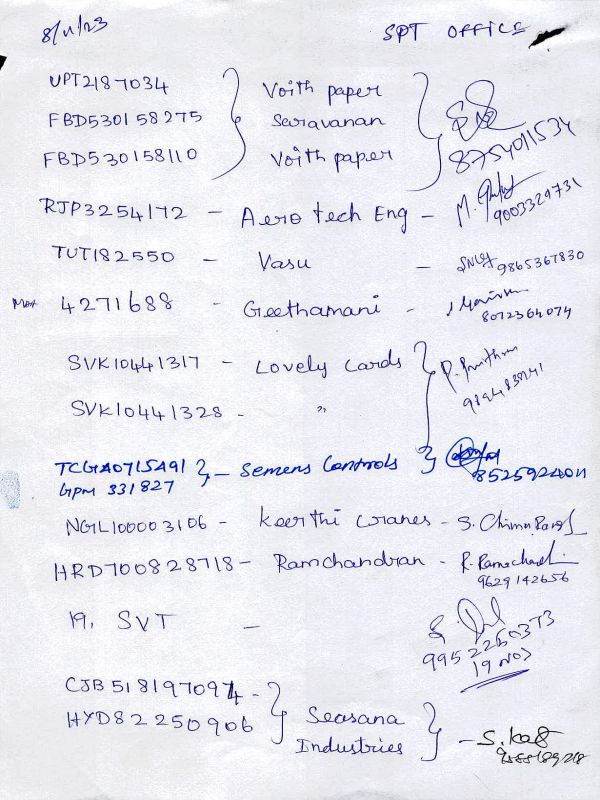 8/11/23 SPT OFFICE
UPT2187034 Voith paper
FBD530158275 Saravanan
FBD530158110 Voith paper 8754011534
RJP3254172 - Aero tech Eng - 9003329731
TUT182550 - Vasu - 9865367830
4271688 - Geethamani - 8072364074
SVK10441317 - Lovely Cards
SVK10441328 - "
TCGA0715A91 - Semens Controls
GPM 331827 8525924011
NGL100003106 - Keerthi Cranes -
HRD700828718 - Ramchandran - R. Ramachandran
9629142656
19, SVT -
9952260373
19 NOS
CJB518197097 -
HYD82250906 Seasana
Industries -